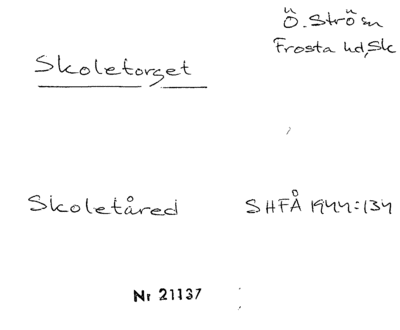 Ö. Strö sn
Frosta hd, Sk
Skoletorget
Skoletåred SHFÅ 1944:134
Nr 21137